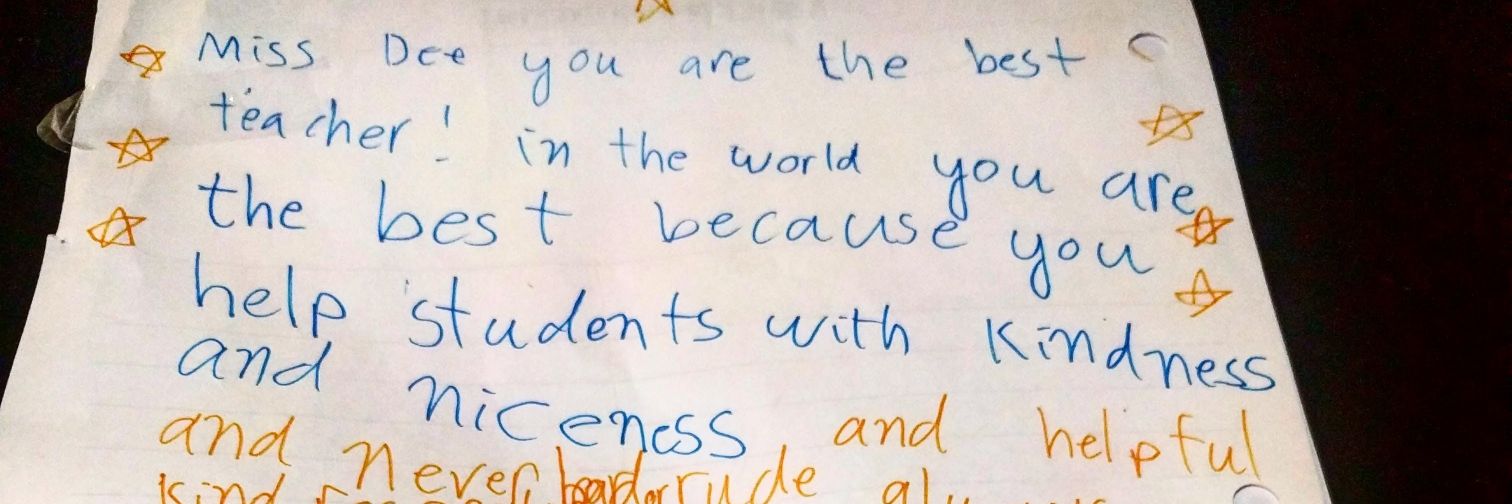 Miss Dee you are the best
teacher! in the world you are
the best because you
help students with kindness
and niceness and helpful
and never rude
kind